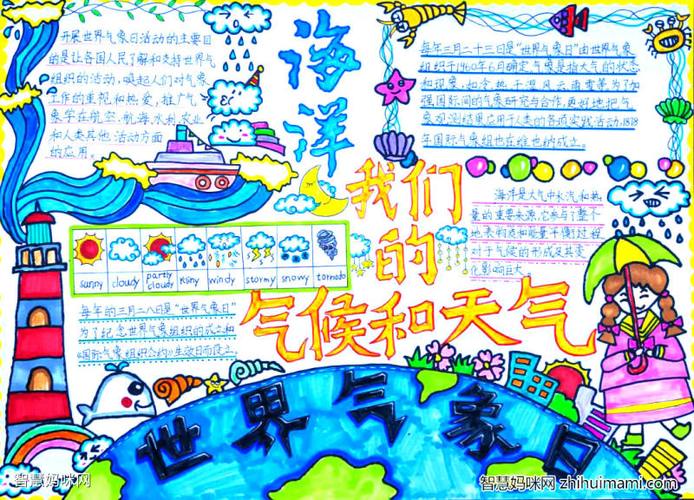 开展世界气象日活动的主要目
的是让各国人民了解和支持世界气象
组织的活动,唤起人们对气象
工作的重视和热爱,推广气
象学在航空,航海,水利,农业
和人类其他活动方面
的应用。
海洋
每年三月二十三日是“世界气象日”由世界气象
组织于1960年6月确定气象是指大气的状态
和现象,如冷热干湿风云雨雪等为了加
强国际间的气象研究与合作,更好地把气
象观测结果应用于人类的各项实践活动,1878
年国际气象组也在难也纳成立。
我们
的
气候和天气
海洋是大气中水汽和热
量的重要来源,它参与了整个
地表物质和能量平衡过程
对于气候的形成及其变
化影响巨大。
sunny cloudy partly cloudy rainy windy stormy snowy tornado
每年的三月二八日是“世界气象日”
为了纪念世界气象组织的成立和
《国际气象组织公约》生效日而设立。
世界气象日
智慧妈咪网
智慧妈咪网 zhihuimami.com